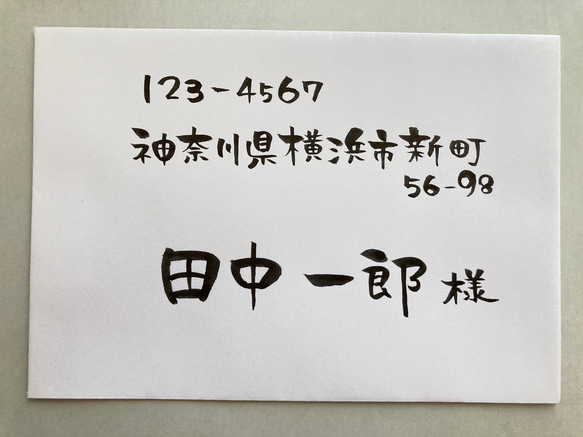 123-4567
神奈川県横浜市新町
56-98
田中一郎様